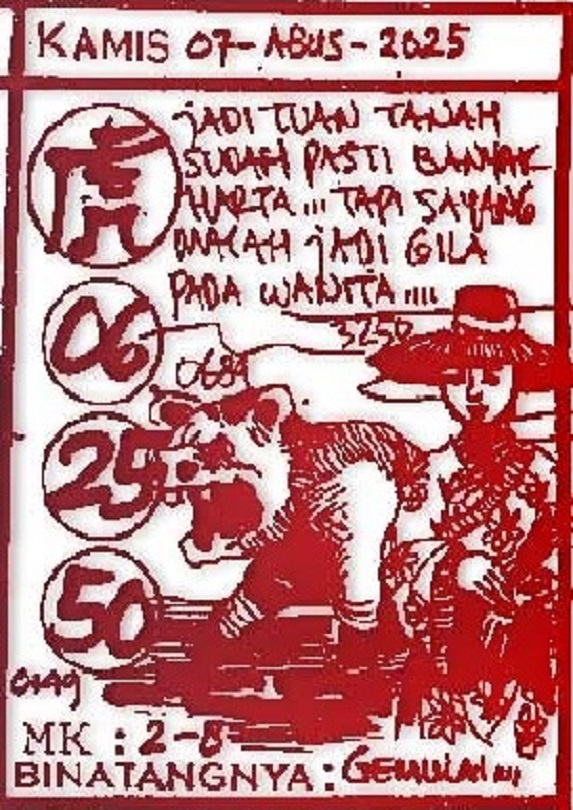 KAMIS 07-AGUS-2025
虎
JADI TUAN TANAH
SUDAH PASTI BANYAK
HARTA... TAPI SAYANG
MALAH JADI GILA
PADA WANITA....
06
25
50
MK : 2-8
BINATANGNYA :